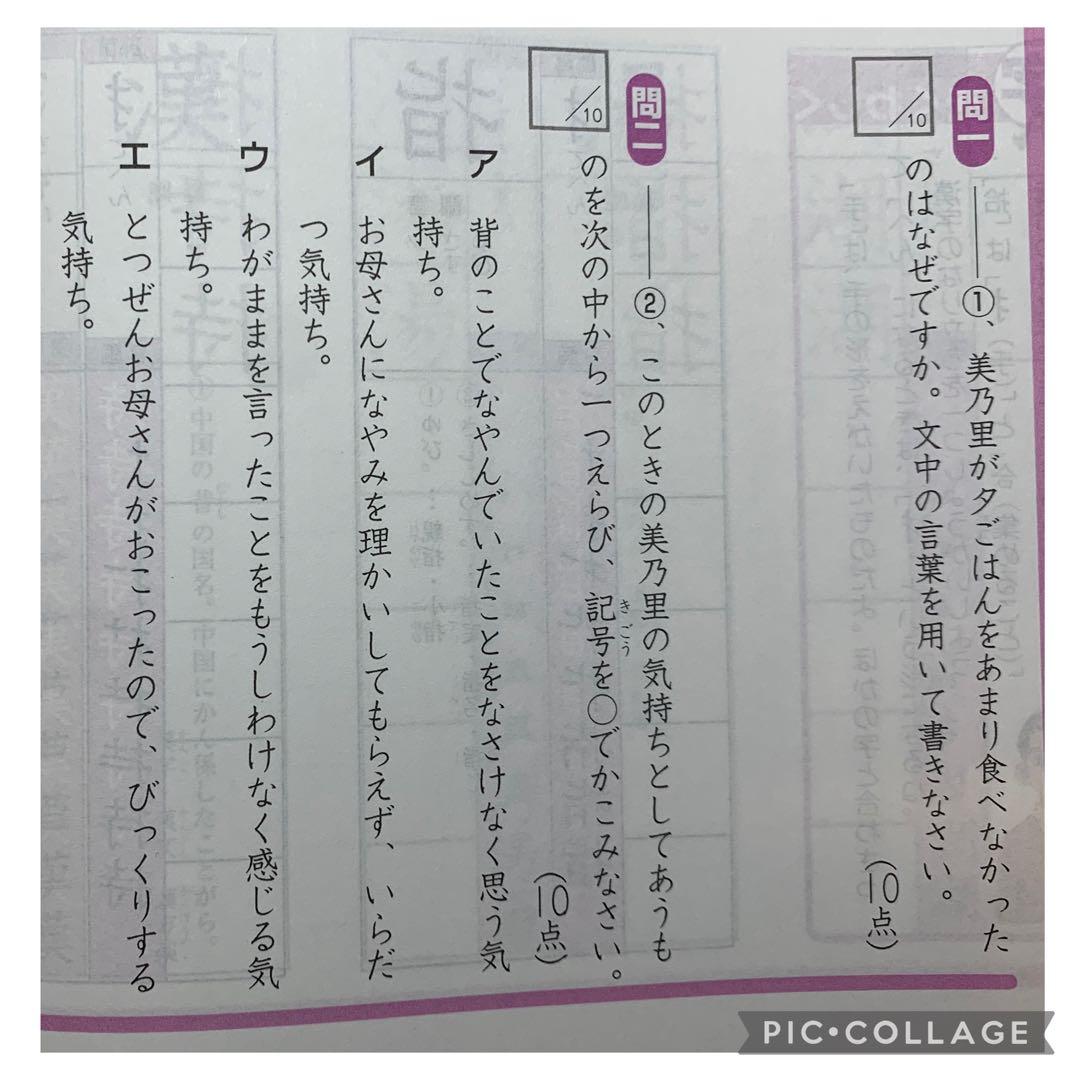 問一
①、美乃里が夕ごはんをあまり食べなかった
のはなぜですか。文中の言葉を用いて書きなさい。
(10点)
/10
問二
②、このときの美乃里の気持ちとしてあうも
のを次の中から一つえらび、記号を○でかこみなさい。
きごう
(10点)
/10
ア 背のことでなやんでいたことをなさけなく思う気
持ち。
イ お母さんになやみを理かいしてもらえず、いらだ
つ気持ち。
ウ わがままを言ったことをもうしわけなく感じる気
持ち。
エ とつぜんお母さんがおこったので、びっくりする
気持ち。
PIC•COLLAGE